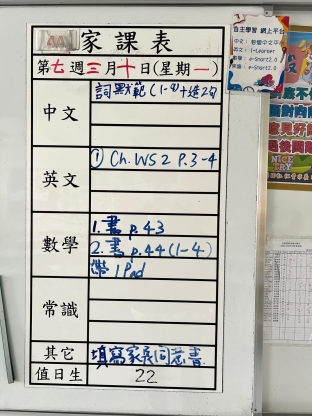 4A 家課表
第七週三月十日(星期一)
中文 詞默範(1-9)+造2句
英文 ① Ch. WS 2 P.3-4
數學 1. 書 p.43
2. 書 p.44 (1-4)
帶 iPad
常識
其它 填寫家長同意書
值日生 22
自主學習 網上平台
i-Learner
e-Smart2.0
e-Smart2.0
NICE TRY